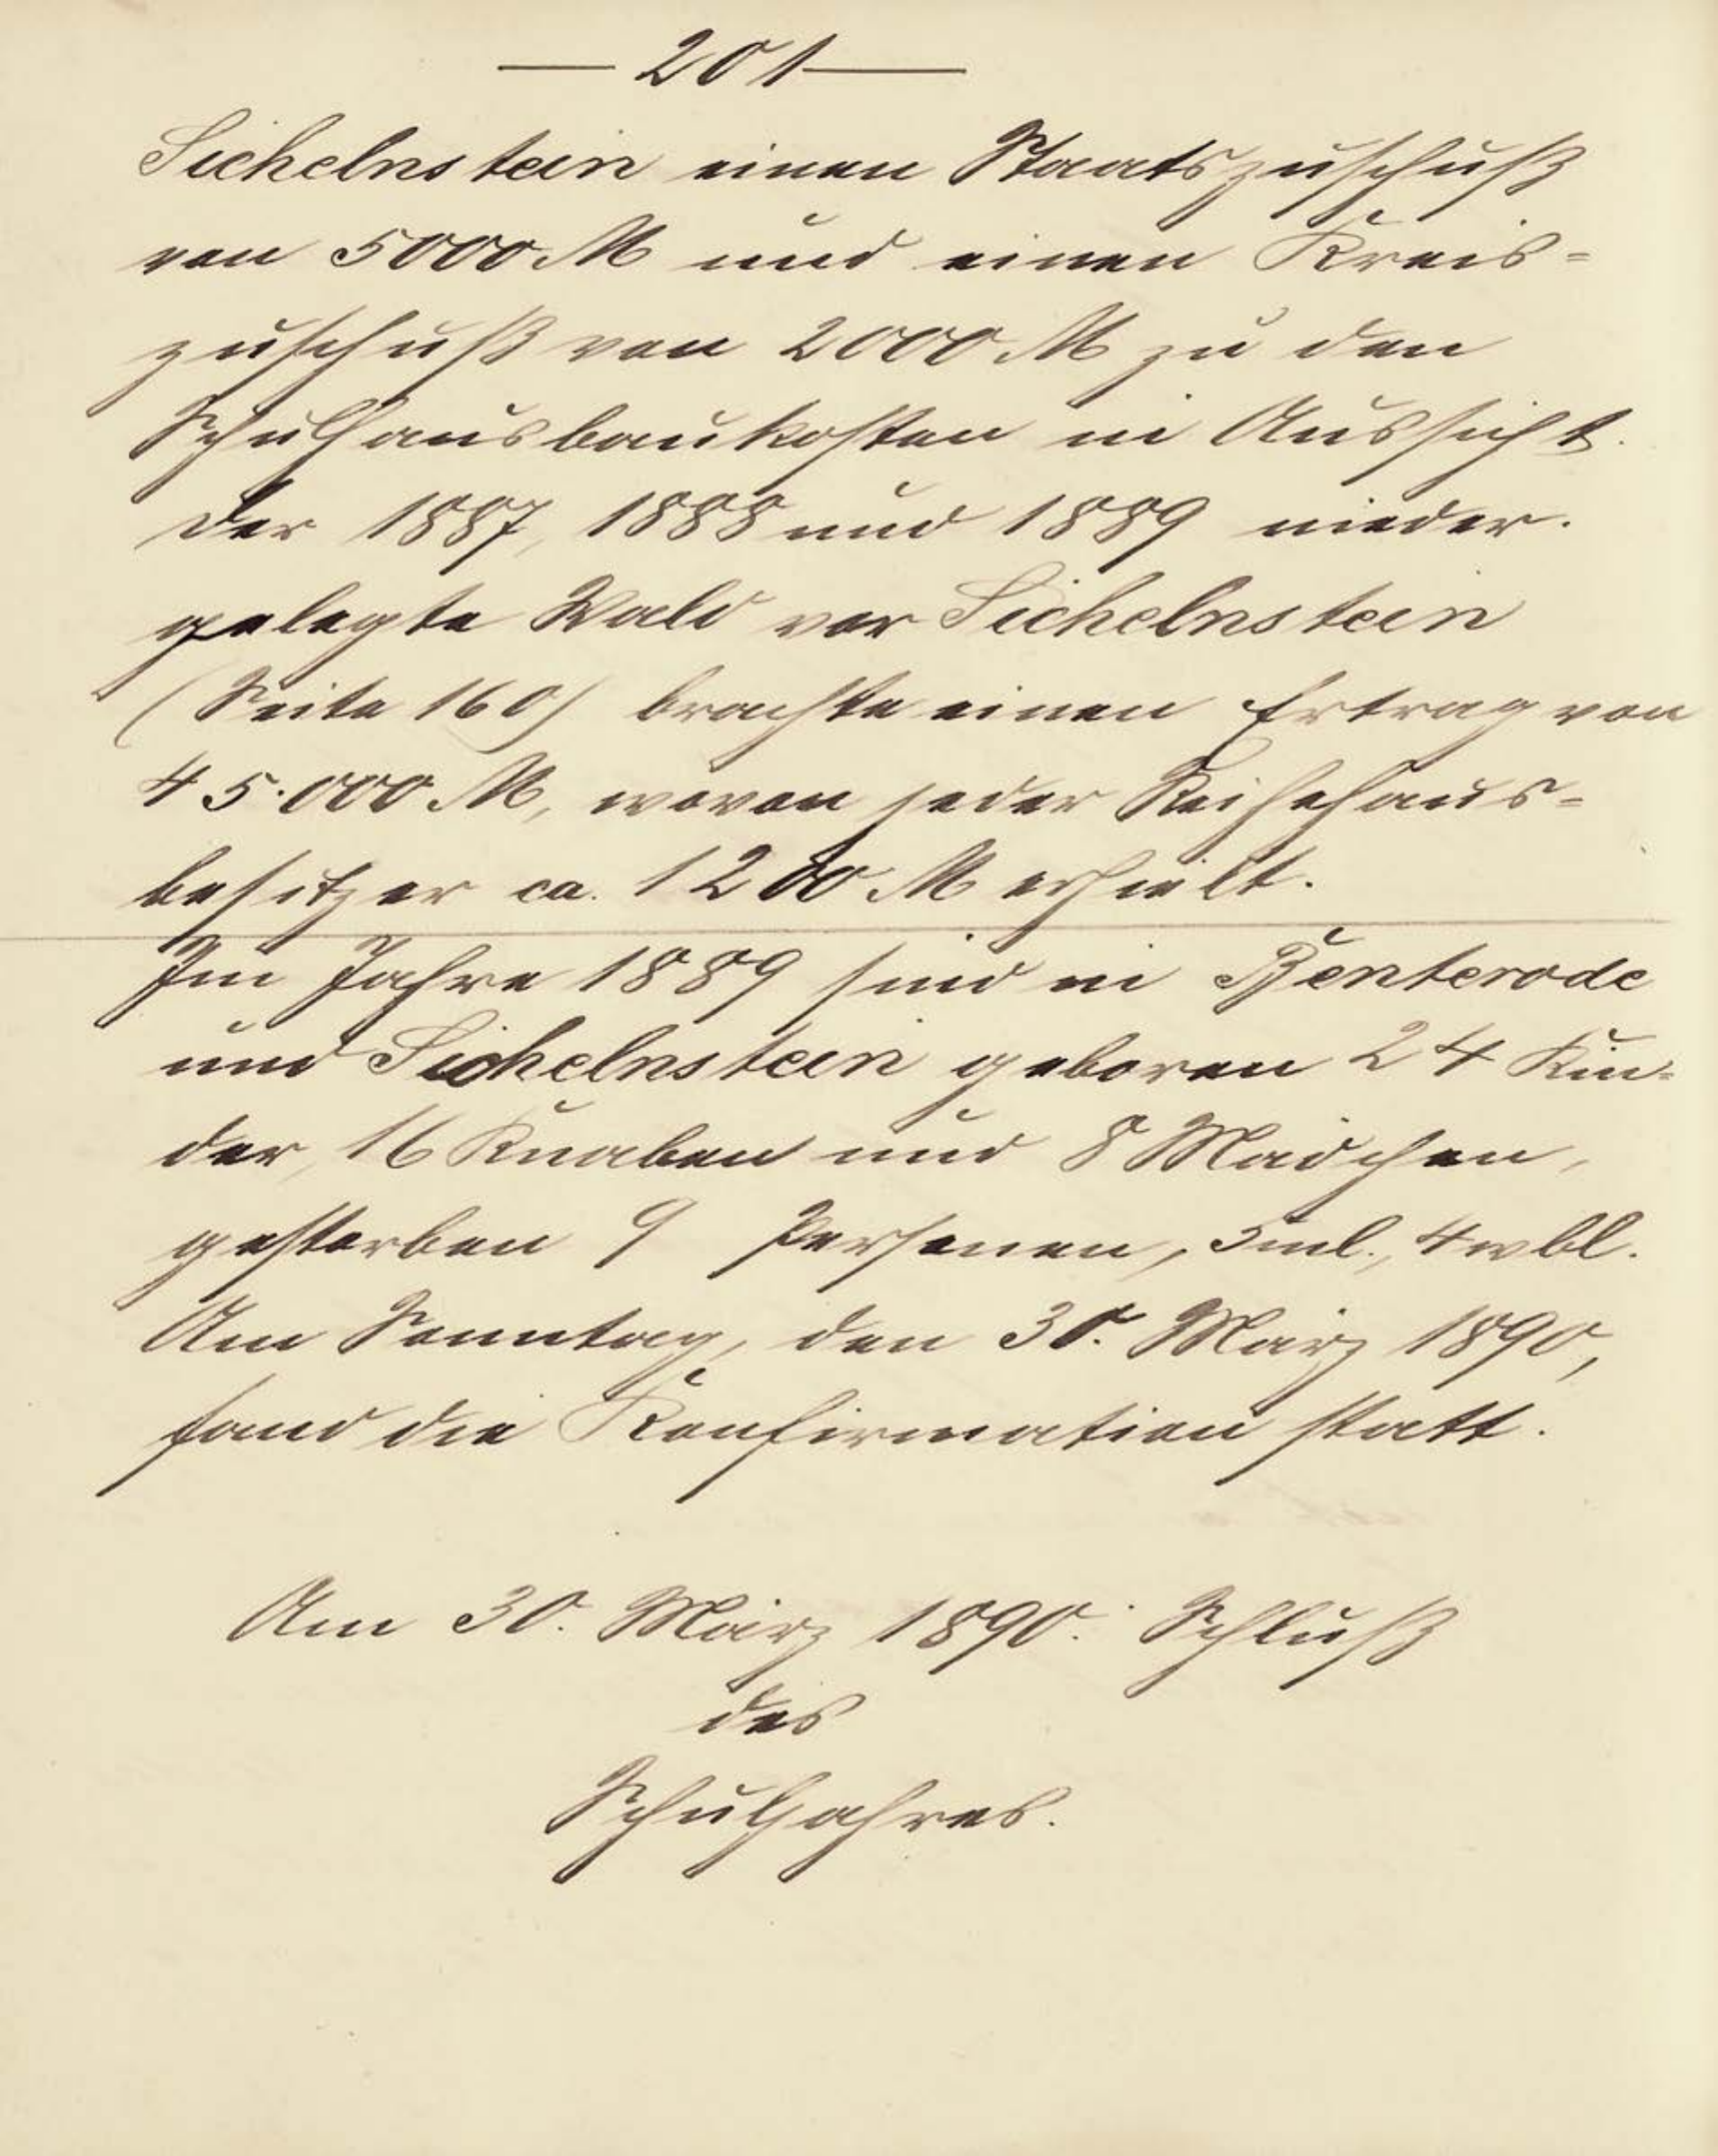 — 201 —
Sichelnstein einen Staatszuschuß
von 5000 M und einen Kreis=
zuschuß von 2000 M zu den
Schulhausbaukosten in Aussicht.
Der 1887, 1888 und 1889 nieder.
gelegte Wald vor Sichelnstein
(Seite 160) brachte einen Ertrag von
45.000 M, wovon jeder Reihehaus=
besitzer ca. 1200 M erhielt.
Im Jahre 1889 sind in Benterode
und Sichelnstein geboren 24 Kin=
der, 16 Knaben und 8 Mädchen,
gestorben 9 Personen, 5 ml., 4 wbl.
Am Sonntag, den 30. März 1890,
fand die Konfirmation statt.
Am 30. März 1890. Schluß
des
Schuljahres.